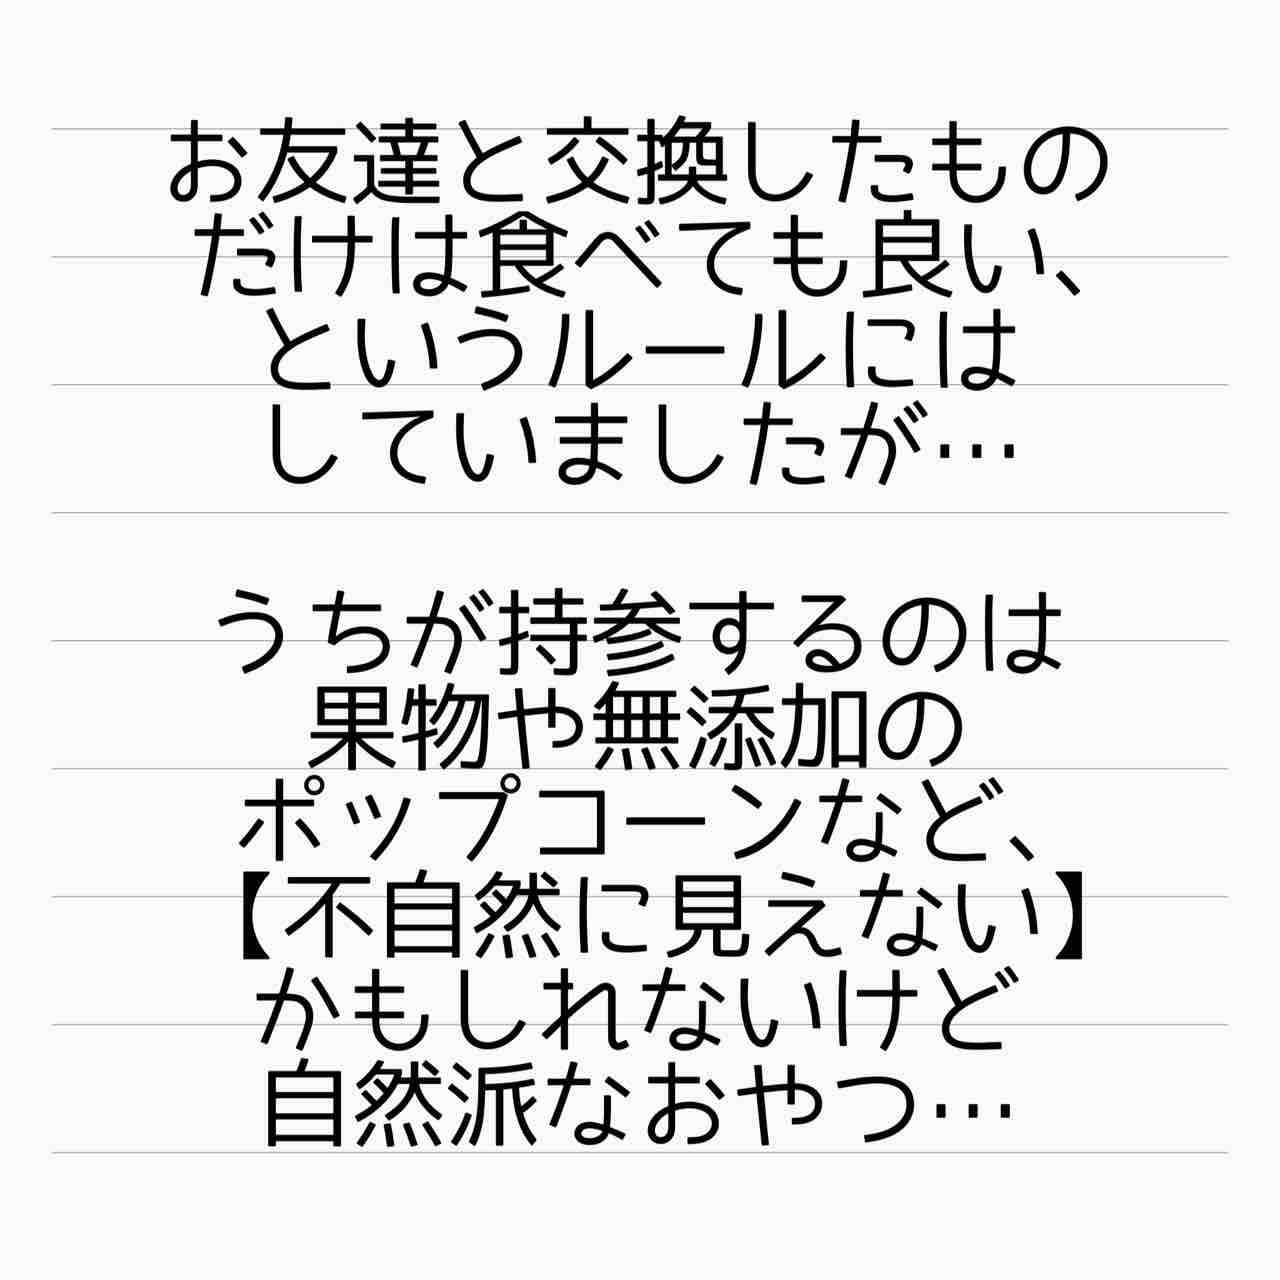 お友達と交換したもの
だけは食べても良い、
というルールには
していましたが…
うちが持参するのは
果物や無添加の
ポップコーンなど、
【不自然に見えない】
かもしれないけど
自然派なおやつ…